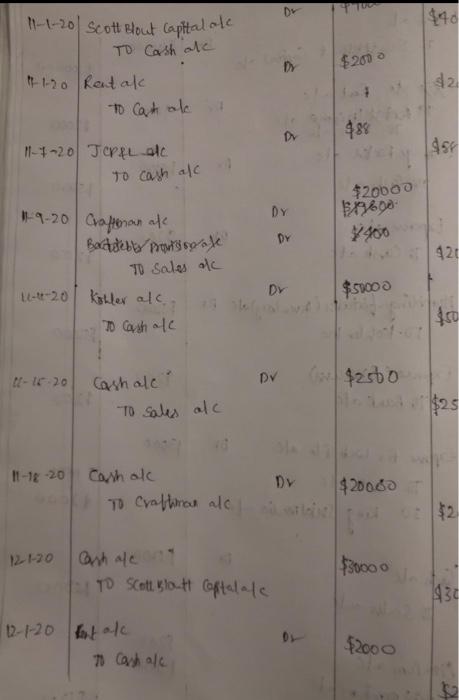 11-1-20 Scott Blout Capital a/c Dr $40
TO Cash a/c
11-1-20 Rent a/c Dr $2000
To Cash a/c $2
11-7-20 JCP&L a/c Dr $88
TO cash a/c $58
11-9-20 Craftman a/c Dr $20000
Dr
TO Sales a/c $20
11-11-20 Kohler a/c Dr $50000
TO Cash a/c $50
11-15-20 Cash a/c Dr $2500
TO Sales a/c $25
11-18-20 Cash a/c Dr $20000
TO Craftman a/c $2
12-1-20 Cash a/c $30000
TO Scott Blout Capital a/c $30
12-1-20 Rent a/c Dr $2000
To Cash a/c
$2